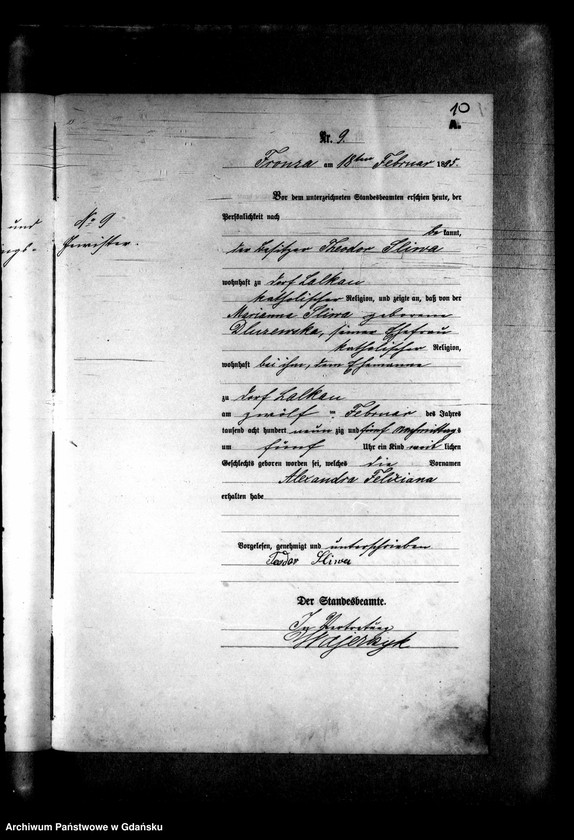 10
A.
Nr. 9.
Fronza am 18ten Februar 1895.
Vor dem unterzeichneten Standesbeamten erschien heute, der
Persönlichkeit nach
be kannt,
der Besitzer Theodor Sliwa
wohnhaft zu Dorf Lalkau
katholischer Religion, und zeigte an, daß von der
Marianna Sliwa geborene
Dluzewska, seiner Ehefrau
katholischer Religion,
wohnhaft bei ihm, dem Ehemanne
zu Dorf Lalkau
am zwölf ten Februar des Jahres
tausend acht hundert neun zig und fünf Nachmittags
um fünf Uhr ein Kind weib lichen
Geschlechts geboren worden sei, welches die Vornamen
Alexandra Feliziana
erhalten habe
Vorgelesen, genehmigt und unterschrieben
Teodor Sliwa
Der Standesbeamte.
In Vertretung
und
No 9
Archiwum Państwowe w Gdańsku